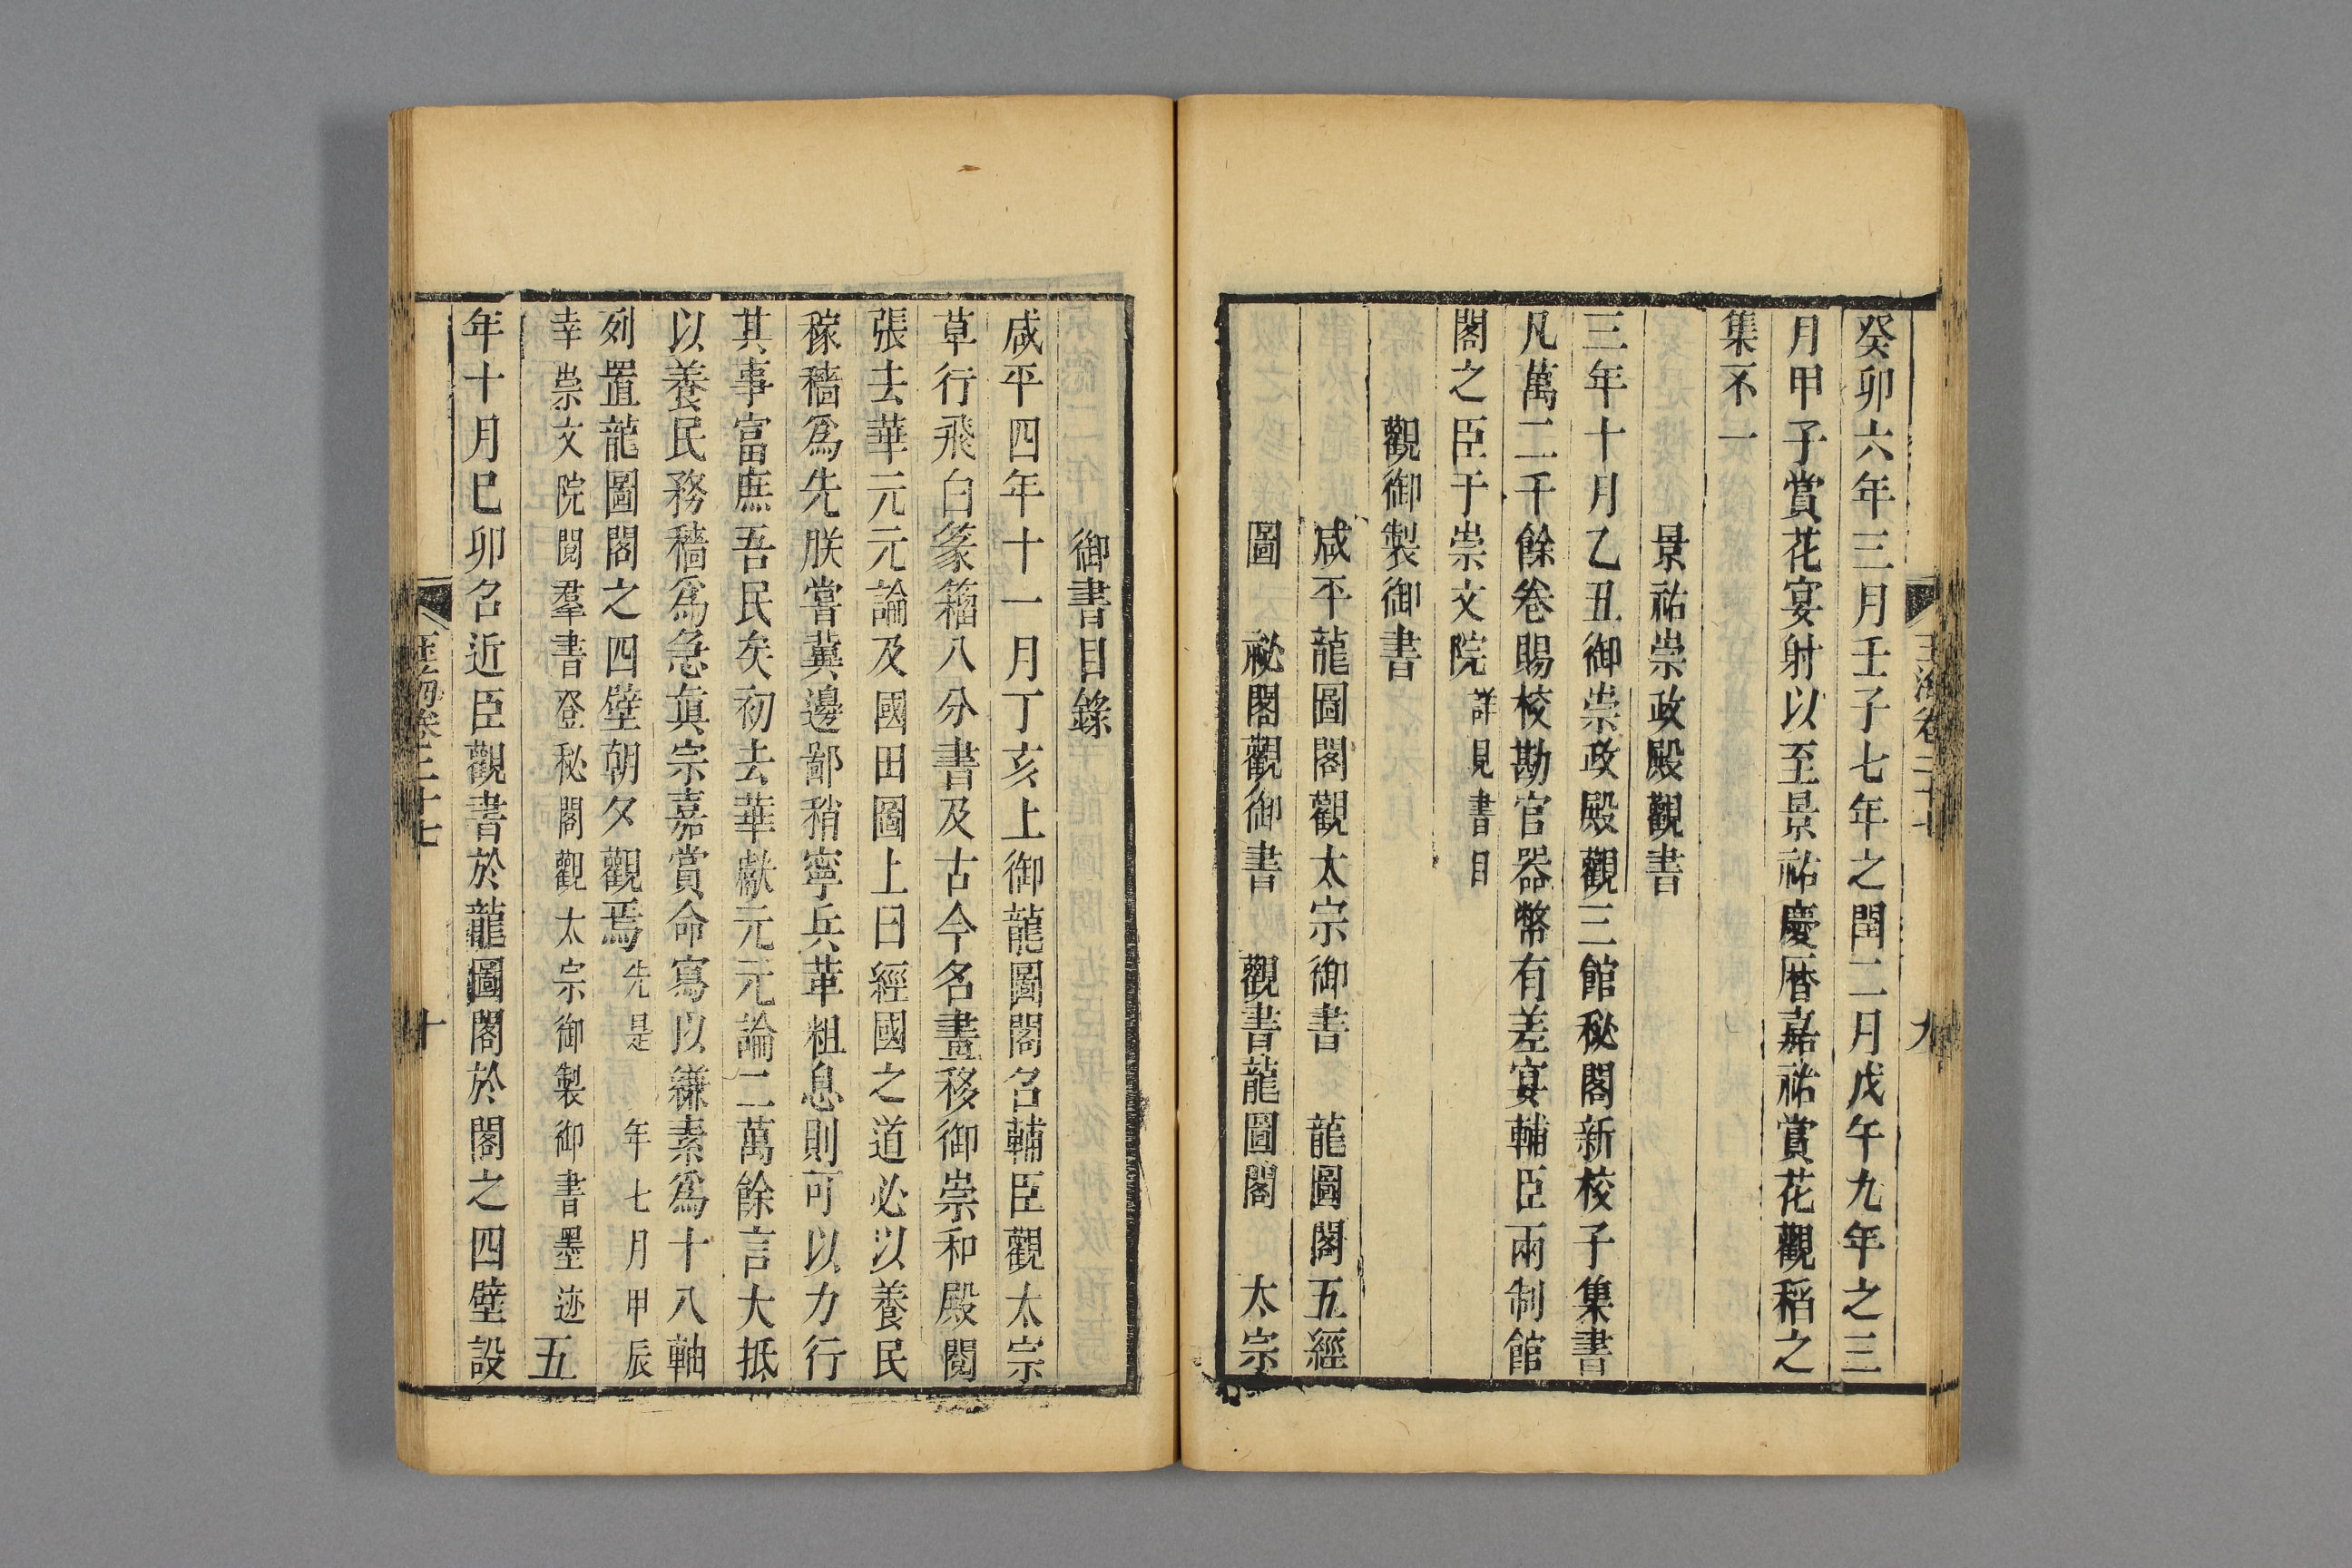 癸卯六年三月壬子七年之閏二月戊午九年之三
月甲子賞花宴射以至景祐慶曆嘉祐賞花觀稻之
集不一
景祐崇政殿觀書
三年十月乙丑御崇政殿觀三館秘閣新校子集書
凡萬二千餘卷賜校勘官器幣有差宴輔臣兩制館
閣之臣于崇文院詳見書目
觀御製御書
咸平龍圖閣觀太宗御書 龍圖閣五經
圖 祕閣觀御書 觀書龍圖閣 太宗
玉海卷二十七 九
御書目錄
咸平四年十一月丁亥上御龍圖閣召輔臣觀太宗
草行飛白篆籀八分書及古今名畫移御崇和殿閱
張去華元元論及國田圖上曰經國之道必以養民
稼穡爲先朕嘗冀邊鄙稍寧兵革粗息則可以力行
其事富庶吾民矣初去華獻元元論二萬餘言大抵
以養民務穡爲急真宗嘉賞命寫以縑素爲十八軸
列置龍圖閣之四壁朝夕觀焉先是 年七月甲辰
幸崇文院閱羣書登秘閣觀太宗御製御書墨迹五
年十月巳卯召近臣觀書於龍圖閣於閣之四壁設
玉海卷二十七 十